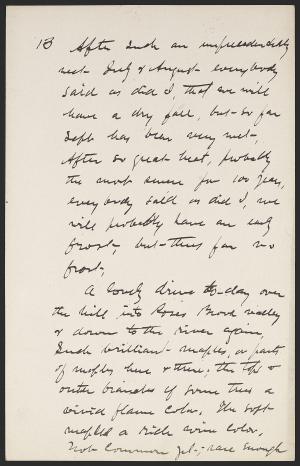 13 After such an unprecedentedly
wet July & August everybody
said as did I that we will
have a dry fall, but so far
Sept has been very wet,
After so great heat, probably
the most severe for 100 years,
everybody said as did I, we
will probably have an early
frost, but thus far no
frost,
A lovely drive to-day over
the hill into Roses Brook valley
& down to the river again,
Such brilliant maples, or parts
of maples here & there; the tops &
outer branches of some trees a
vivid flame color. The soft
maples a rich wine color,
Not common yet; rare enough